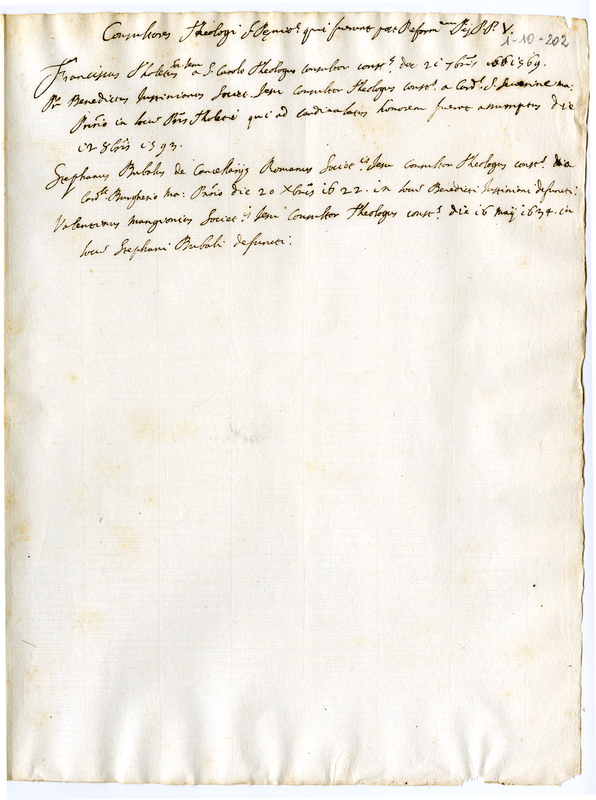 Consultores Theologi S. Pęnit.ę qui fuerunt post Reform.nem Pij P.P. V.
1-10-202
Franciscus Tholetus Soc. Iesu a S. Carolo Theologus consultor const.s die 21 7bris 1569.
Pr Benedictus Iustinianus Societ. Iesu consultor Theologus const.s a Card. S. Severinę ma:
Pęnrio in locu Pris Tholeti qui ad cardinalatus honorem fuerat assumptus die
12 8bris 1593.
Stephanus Bubalus de Cancellarijs Romanus Societ.is Iesu Consultor Theologus const.s a
Card.le Burghesio ma: Pęnrio die 20 Xbris 1622. in locu Benedicti Iustiniani defuncti:
Valentinus mangionius Societ.is Iesu Consultor Theologus const.s die 16 maij 1634. in
locu Stephani Bubali defuncti: